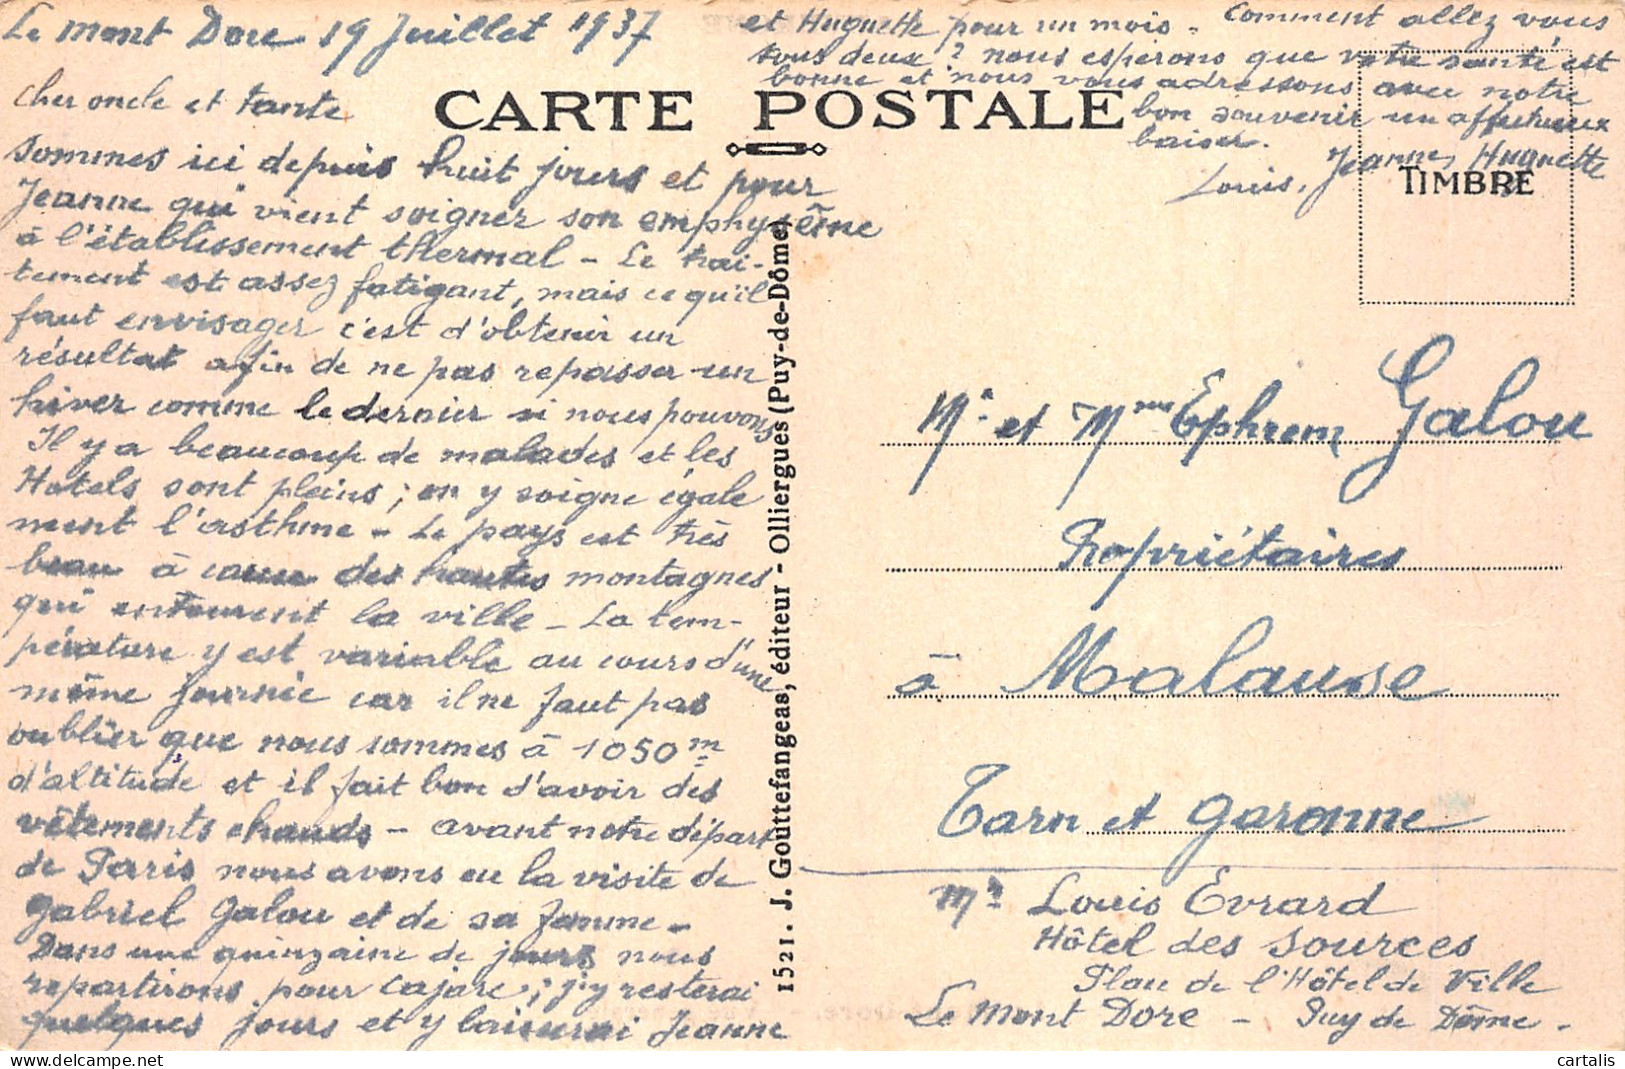 Le Mont Dore 19 Juillet 1937
Cher oncle et tante
Sommes ici depuis huit jours et pour
Jeanne qui vient soigner son emphysème
à l'établissement thermal - Le trai-
tement est assez fatigant, mais ce qu'il
faut envisager c'est d'obtenir un
résultat afin de ne pas repasser un
hiver comme le dernier si nous pouvons
Il y a beaucoup de malades et les
Hotels sont pleins ; on y soigne égale
ment l'asthme - Le pays est très
beau à cause des hautes montagnes
qui entourent la ville - La tem-
pérature y est variable au cours d'une
même journée car il ne faut pas
oublier que nous sommes à 1050 m
d'altitude et il fait bon d'avoir des
vêtements chauds - avant notre départ
de Paris nous avons eu la visite de
Gabriel Galou et de sa femme -
Dans une quinzaine de jours nous
repartirons pour Cajarc ; j'y resterai
quelques jours et y laisserai Jeanne
et Huguette pour un mois - Comment allez vous
tous deux ? nous espérons que votre santé est
bonne et nous vous adressons avec notre
bon souvenir un affectueux
baiser.
Louis, Jeanne, Huguette
CARTE POSTALE
TIMBRE
1521. J. Gouttefangeas, éditeur - Olliergues (Puy-de-Dôme)
Mr et Mme Ephrem Galou
Propriétaires
à Malause
Tarn et Garonne
Mr Louis Evrard
Hôtel des Sources
Place de l'Hôtel de Ville
Le Mont Dore - Puy de Dôme -
cartalis